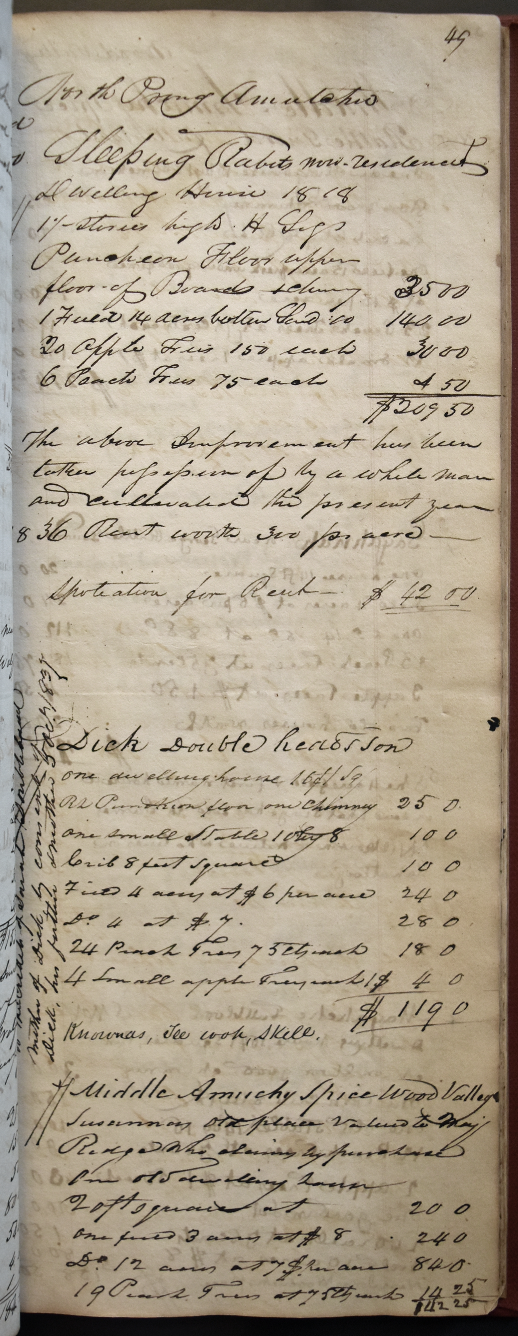 49
North Prong Amutchee
Sleeping Rabits now residence
Dwelling House 18 18
1½ stories high H Logs
Puncheon Floor upper
floor of Boards chimney 35 00
1 Field 14 acres bottom Land 10 140 00
20 Apple Trees 150 each 30 00
6 Peach Trees 75 each 4 50
$209 50
The above Improvement has been
taken possession of by a white man
and cultivated the present year
1836 Rent worth 300 pr acre
Spoliation for Rent $ 42 00
Dick Double heads son
one dwelling house 16 ft Sq
Puncheon floor one Chimney 25 0
one small Stable 10 by 8 10 0
Crib 8 feet Square 10 0
Field 4 acres at $6 per acre 24 0
Do 4 at $7. 28 0
24 Peach Trees 75 cts each 18 0
4 Small apple Trees each 1$ 4 0
$ 119 0
Known as, Tee cook, Skell.
mother of Dick by consent of
Dick, his father & mother 1837
Middle Amuchy Spice Wood Valley
Susannas old place Valued to Maj
Ridge Who claims by purchase
One old dwelling house
20 ft square at 20 0
one field 3 acres at $ 8 24 0
Do 12 acres at 7$ per acre 84 0
19 Peach Trees at 75 cts each 14 25
142 25